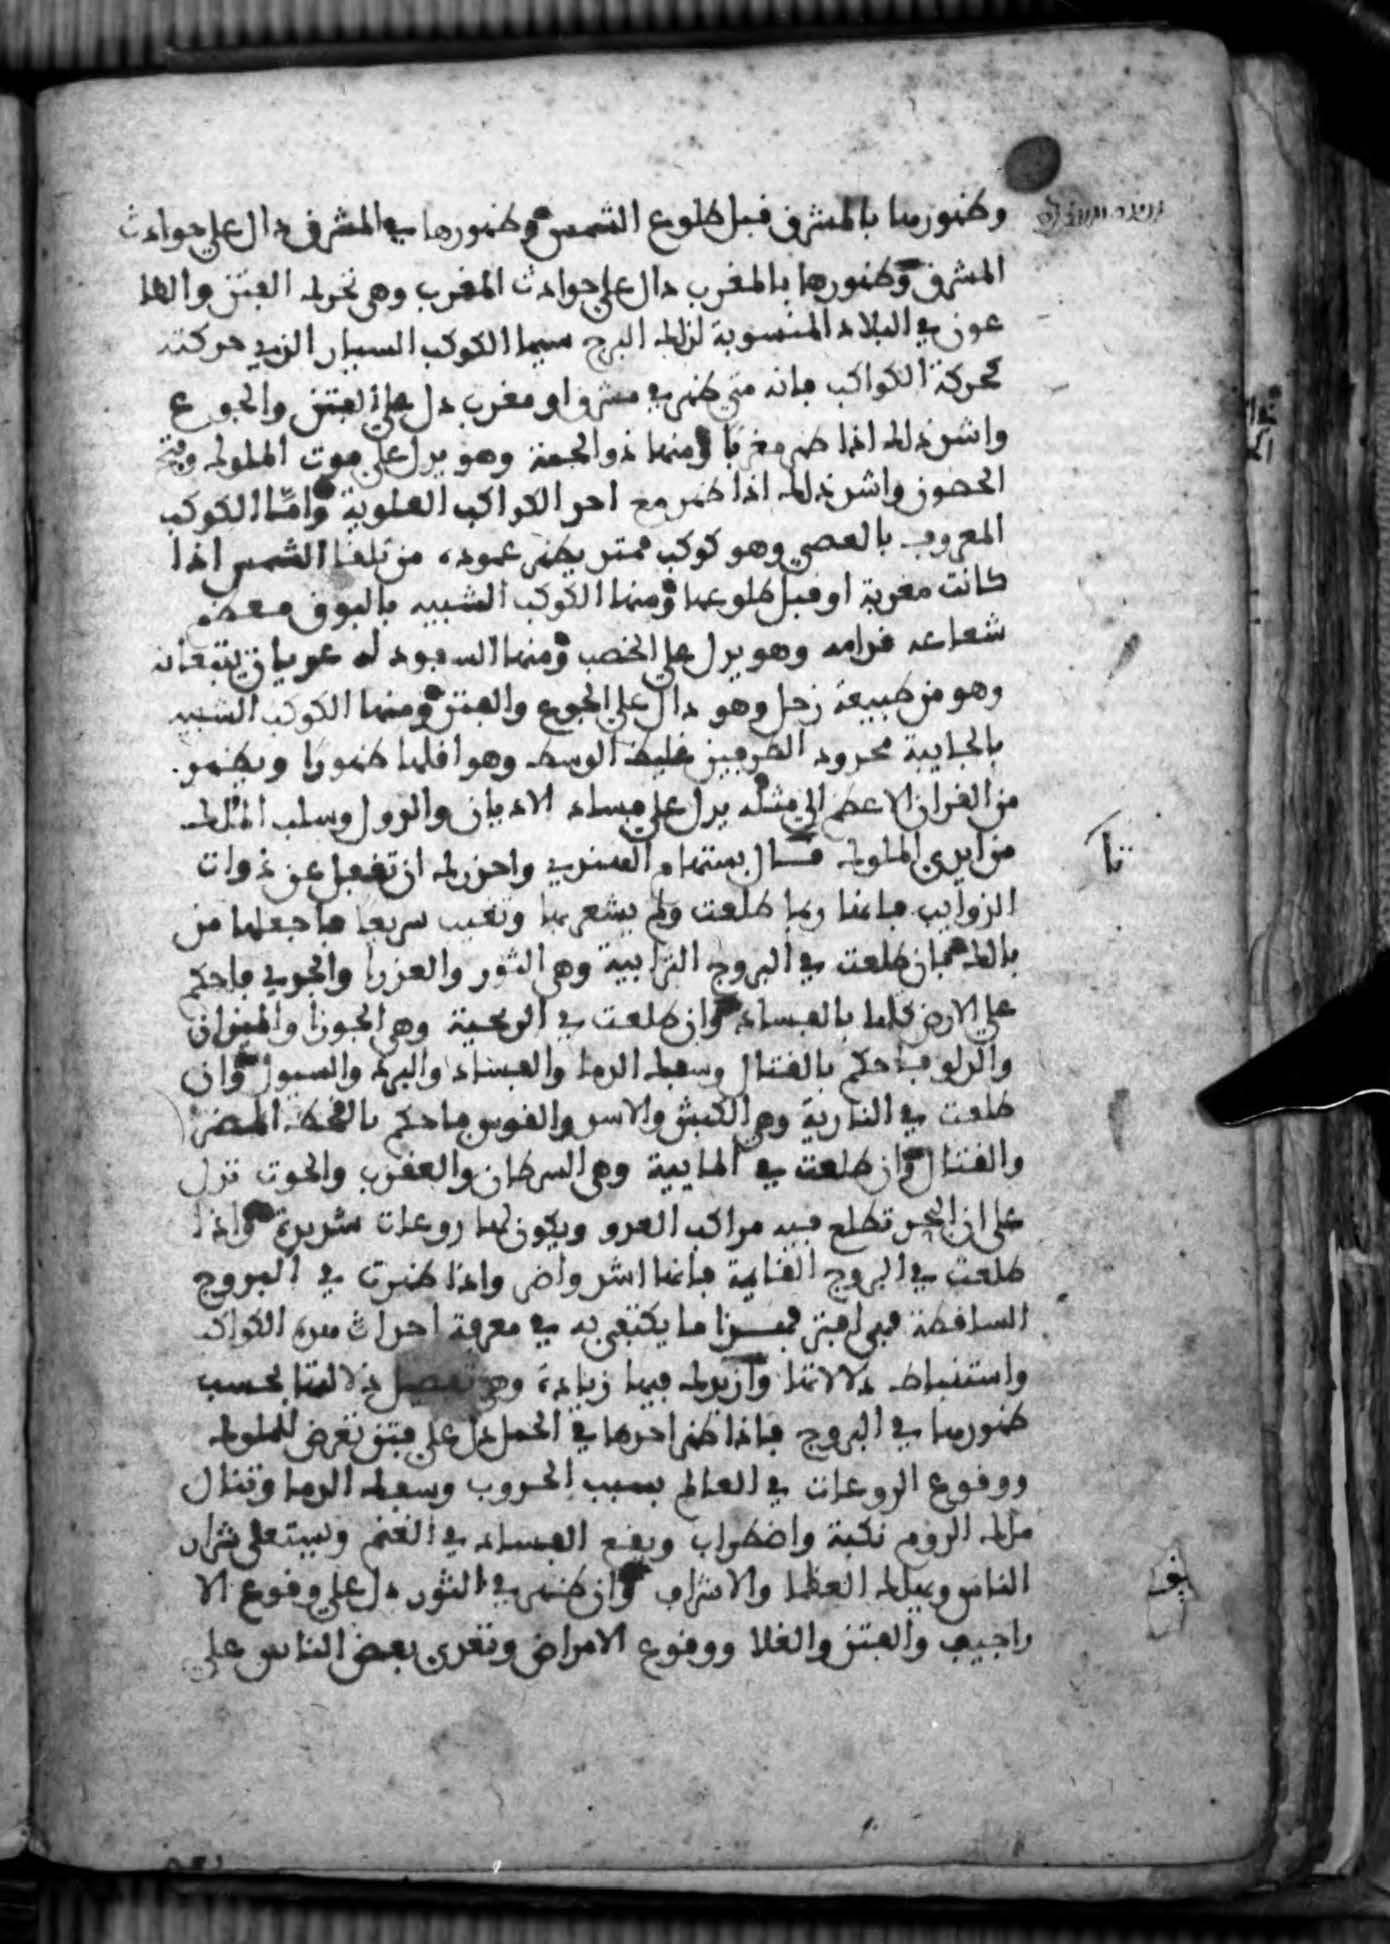 وظهورها بالمشرق قبل طلوع الشمس وظهورها في المشرق دال على حوادث
المشرق وظهورها بالمغرب دال على حوادث المغرب وهي تحرك الفتن والطا
عون في البلاد المنسوبة لذلك البرج سيما الكوكب السيار الذي حركته
كحركة الكواكب فانه متى ظهر في مشرق او مغرب دل على الفتن والجوع
واشد ذلك اذا ظهر مغربا ومنها ذو الجمة وهو يدل على موت الملوك وفتح
الحصون واشد ذلك اذا ظهر مع احد الكواكب العلوية واما الكوكب
المعروف بالعصي وهو كوكب ممتد يظهر عموده من تلقا الشمس اذا
كانت مغربة او قبل طلوعها ومنها الكوكب الشبيه بالبوق معظم
شعاعه قدامه وهو يدل على الخصب ومنها السفود له عويان يتبعانه
وهو من طبيعة زحل وهو دال على الجوع والفتن ومنها الكوكب الشبيه
بالجابية محدود الطرفين غليظ الوسط وهو اقلها ظهورا ويظهر
من القران الاعظم الى مثله يدل على فساد الاديان والدول وسلب الملك
من ايدي الملوك قال واحذرك ان تغفل عن ذوات
الذوايب فانها ربما طلعت ولم يشعر بها وتغيب سريعا فاجعلها من
بالك فان طلعت في البروج الترابية وهي الثور والعذرا والجدي فاحكم
على الارض كلها بالفساد وان طلعت في الريحية وهي الجوزا والميزان
والدلو فاحكم بالقتال وسفك الدما والفساد والبرد والسيول وان
طلعت في النارية وهي الكبش والاسد والقوس فاحكم بالقحط المضر
والقتال وان طلعت في المايية وهي السرطان والعقرب والحوت تدل
على ان البحر تطلع فيه مراكب العدو ويكون لها روعات شديدة واذا
طلعت في البروج القايمة فانها اشد واضر واذا ظهرت في البروج
الساقطة فهي افتر فهذا ما يكتفى به في معرفة احداث هذه الكواكب
واستنباط دلالاتها وازيدك فيها زيادة وهي تفصيل دلالتها بحسب
ظهورها في البروج فاذا ظهر احدها في الحمل دل على فتن تعرض للملوك
ووقوع الروعات في العالم بسبب الحروب وسفك الدما وتنال
ملك الروم نكبة واضطراب ويقع الفساد في الغنم ويستعلى شرار
الناس ويهلك العظما والاشراف وان ظهر في الثور دل على وقوع الا
راجيف والفتن والغلا ووقوع الامراض وتعدي بعض الناس على